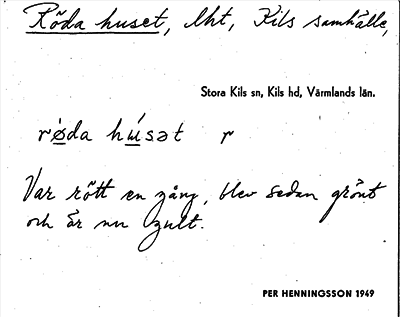 Röda huset, lht, Kils samhälle,
Stora Kils sn, Kils hd, Värmlands län.
rø̀da húsət r
Var rött en gång, blev sedan grönt
och är nu gult.
PER HENNINGSSON 1949